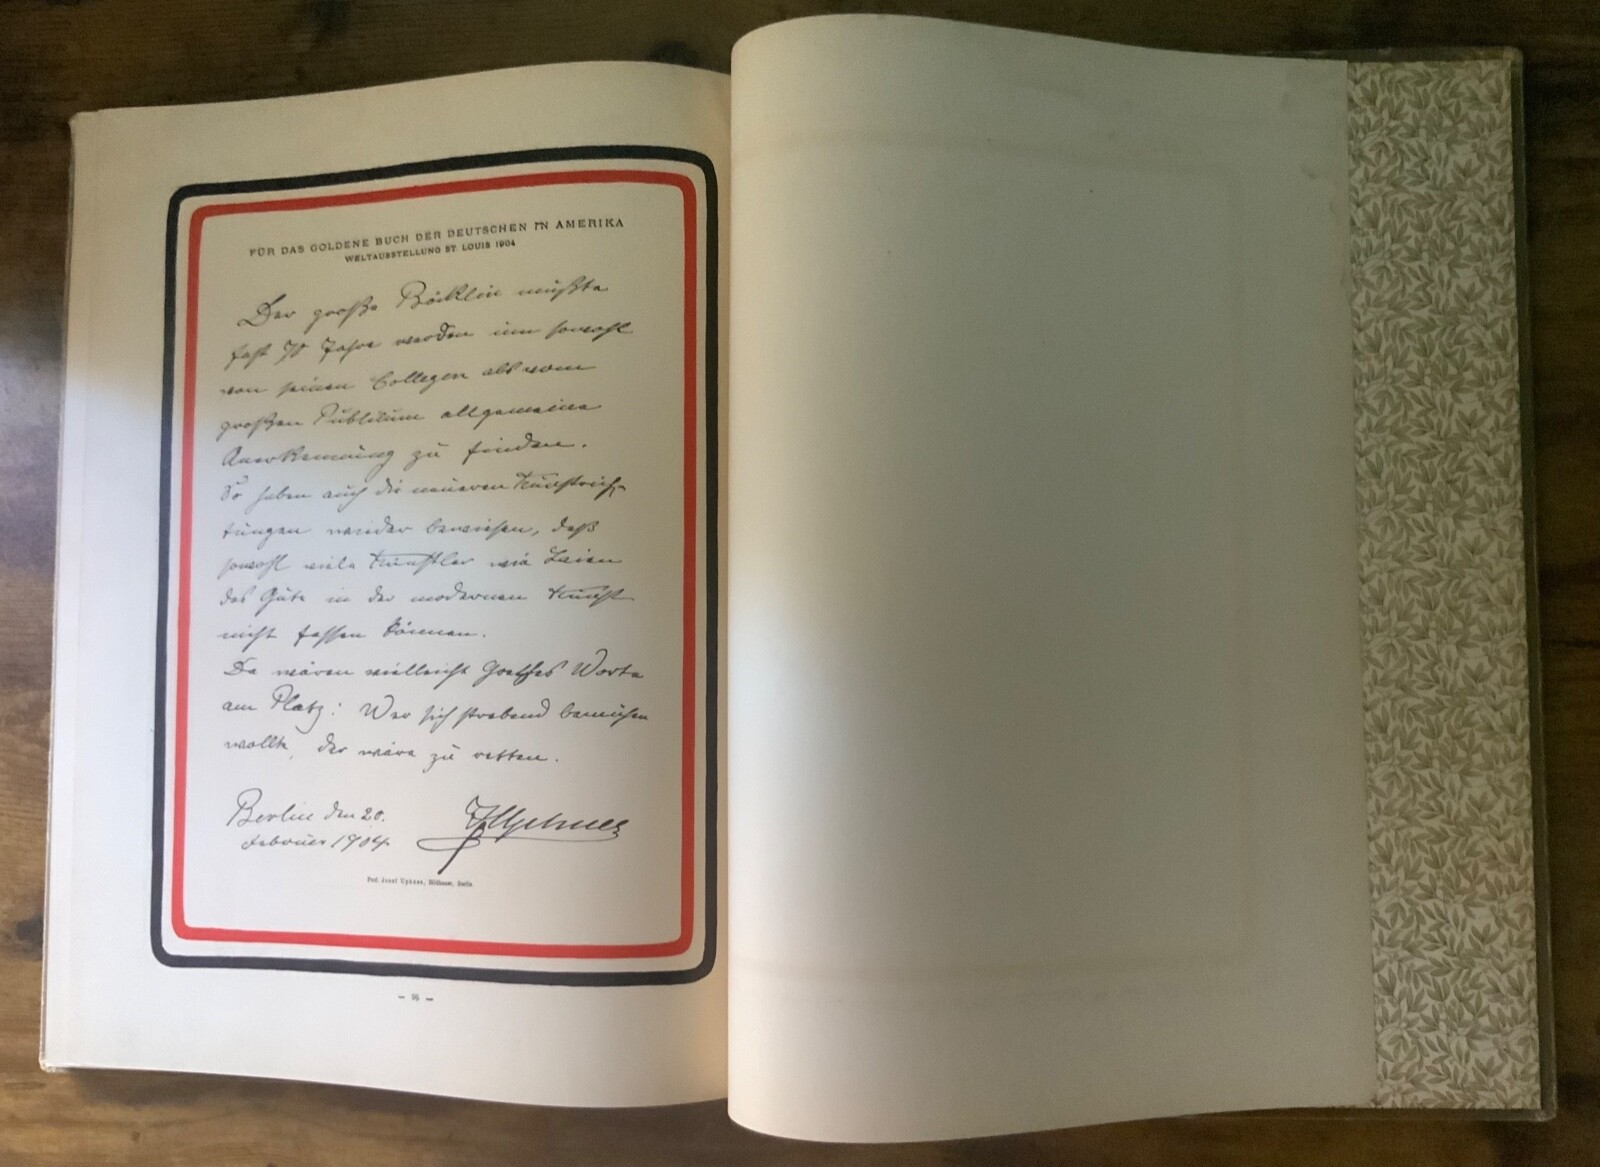 FÜR DAS GOLDENE BUCH DER DEUTSCHEN IN AMERIKA
WELTAUSSTELLUNG ST. LOUIS 1904
Der große Böcklin mußte
fast 70 Jahre werden um sowohl
von seinen Collegen als vom
großen Publikum allgemeine
Anerkennung zu finden.
So haben auch die neueren Kunstrich-
tungen wieder bewiesen, daß
sowohl viele Künstler wie Laien
das Gute in der modernen Kunst
nicht fassen können.
Da wären vielleicht Goethes Worte
am Platz: Wer sich strebend bemühen
wollte, der wäre zu retten.
Berlin den 20.
Februar 1904.
Prof. Josef Uphues, Bildhauer, Berlin.